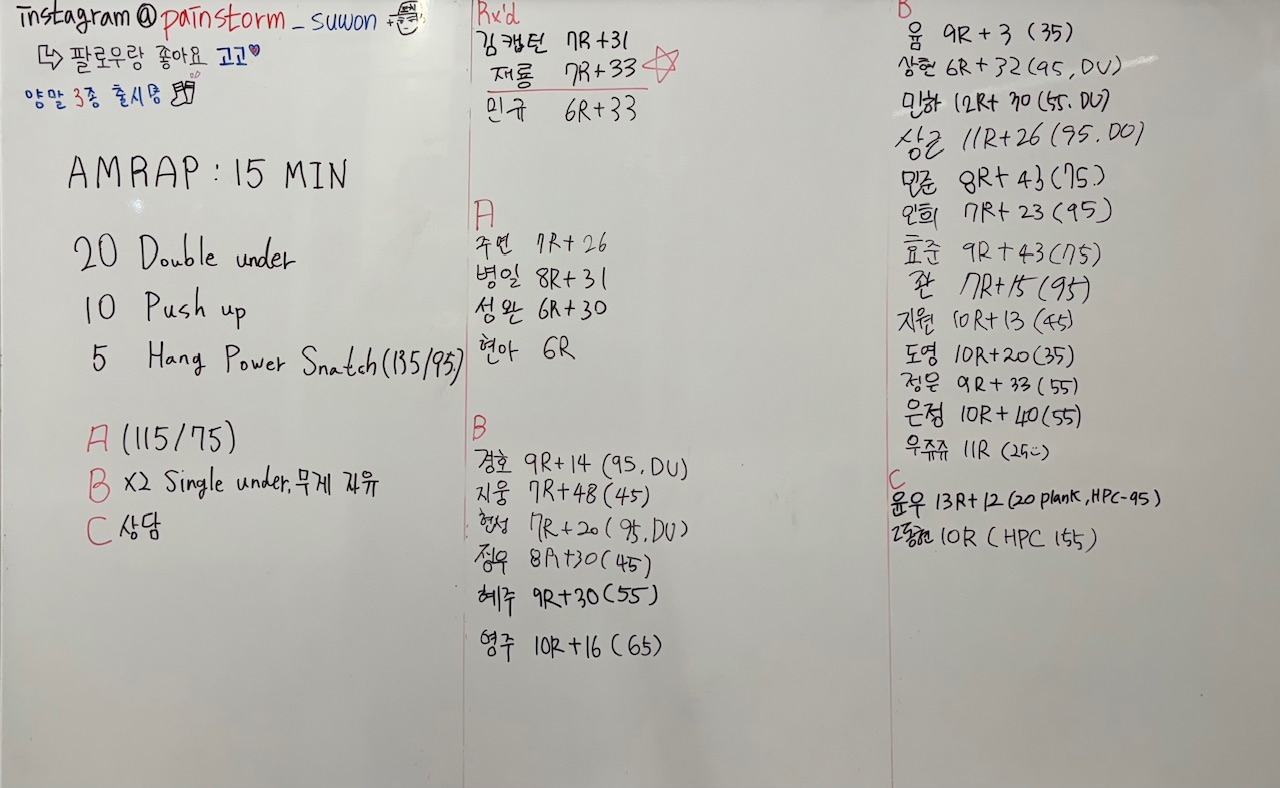 instagram @ painstorm_suwon
팔로우랑 좋아요 고고
양말 3종 출시중
AMRAP : 15 MIN
20 Double under
10 Push up
5 Hang Power Snatch (135/95)
A (115/75)
B x2 Single under, 무게 자유
C 상담
Rx'd
김캡턴 7R+31
재룡 7R+33
민규 6R+33
A
주연 7R+26
병일 8R+31
성완 6R+30
현아 6R
B
경호 9R+14 (95, DU)
지웅 7R+48 (45)
현성 7R+20 (95, DU)
정우 8R+30 (45)
혜주 9R+30 (55)
영주 10R+16 (65)
B
윰 9R+3 (35)
상현 6R+32 (95, DU)
민하 12R+30 (55. DU)
상근 11R+26 (95. DU)
민준 8R+43 (75.)
인희 7R+23 (95)
효준 9R+43 (75)
관 7R+15 (95)
지원 10R+13 (45)
도영 10R+20 (35)
정은 9R+33 (55)
은정 10R+40 (55)
우쥬쥬 11R (25:)
C
윤우 13R+12 (20 plank, HPC-95)
동현 10R (HPC 155)